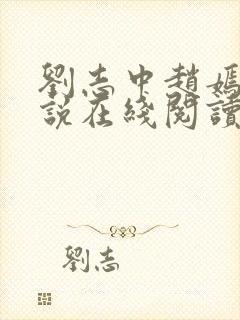 劉志中趙媽
說在綫閱讀
劉志